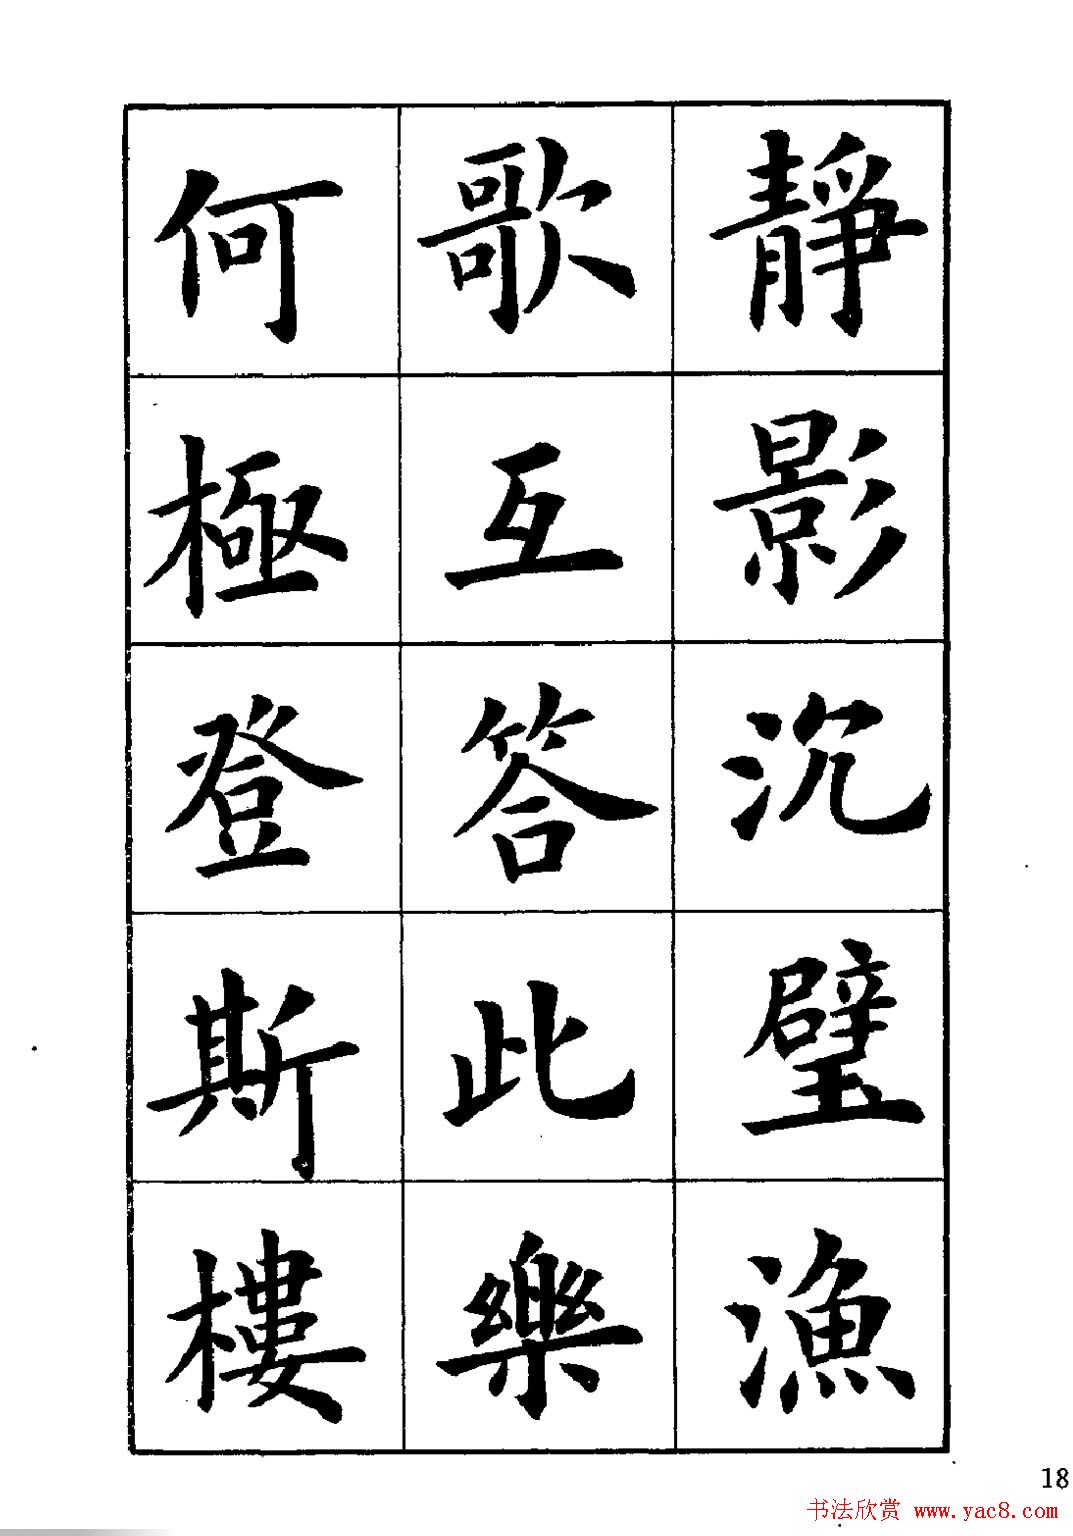 靜影沉璧漁
歌互答此樂
何極登斯樓
18
书法欣赏 www.yac8.com